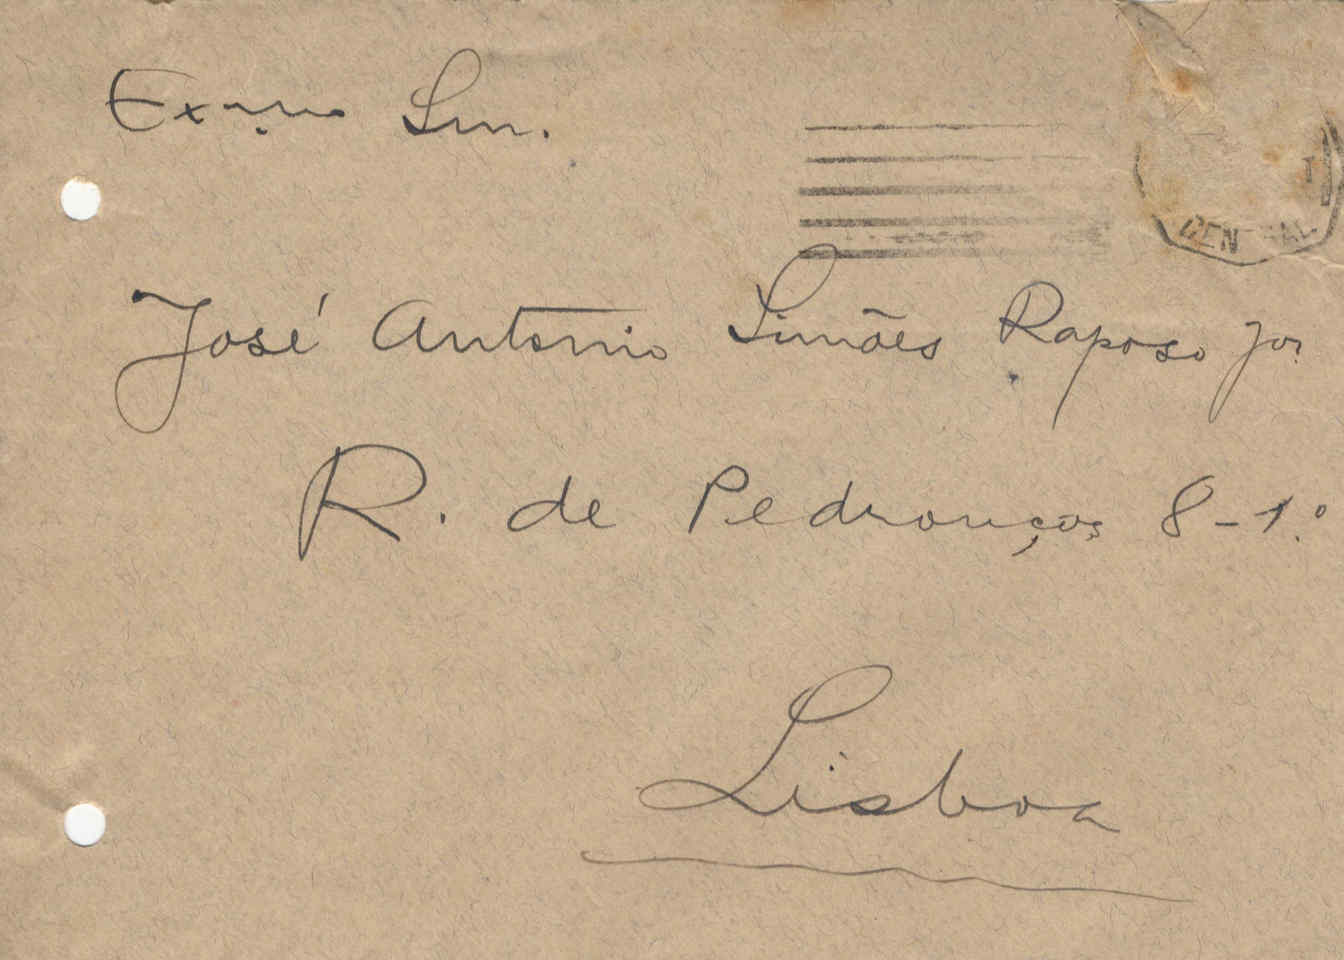 Exmo Snr.
CENTRAL
José Antonio Simões Raposo Jor.
R. de Pedrouços 8-1.º
Lisboa